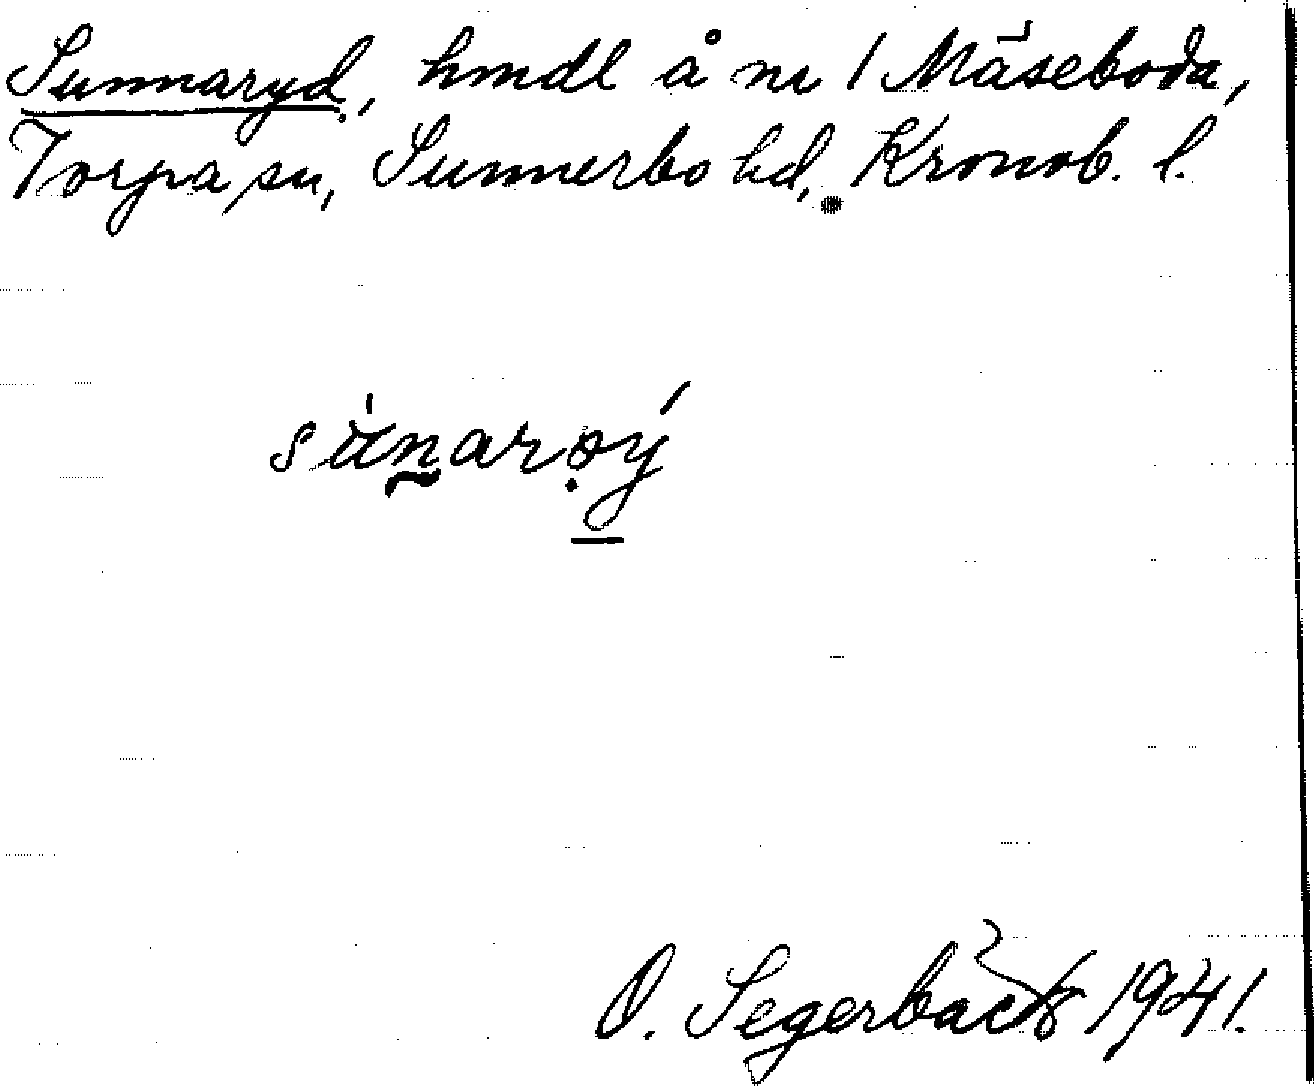 Sunnaryd, hmdl å nr 1 Mäseboda,
Torpa sn, Sunnerbo hd, Kronob. l.
O. Segerbäck 1941.